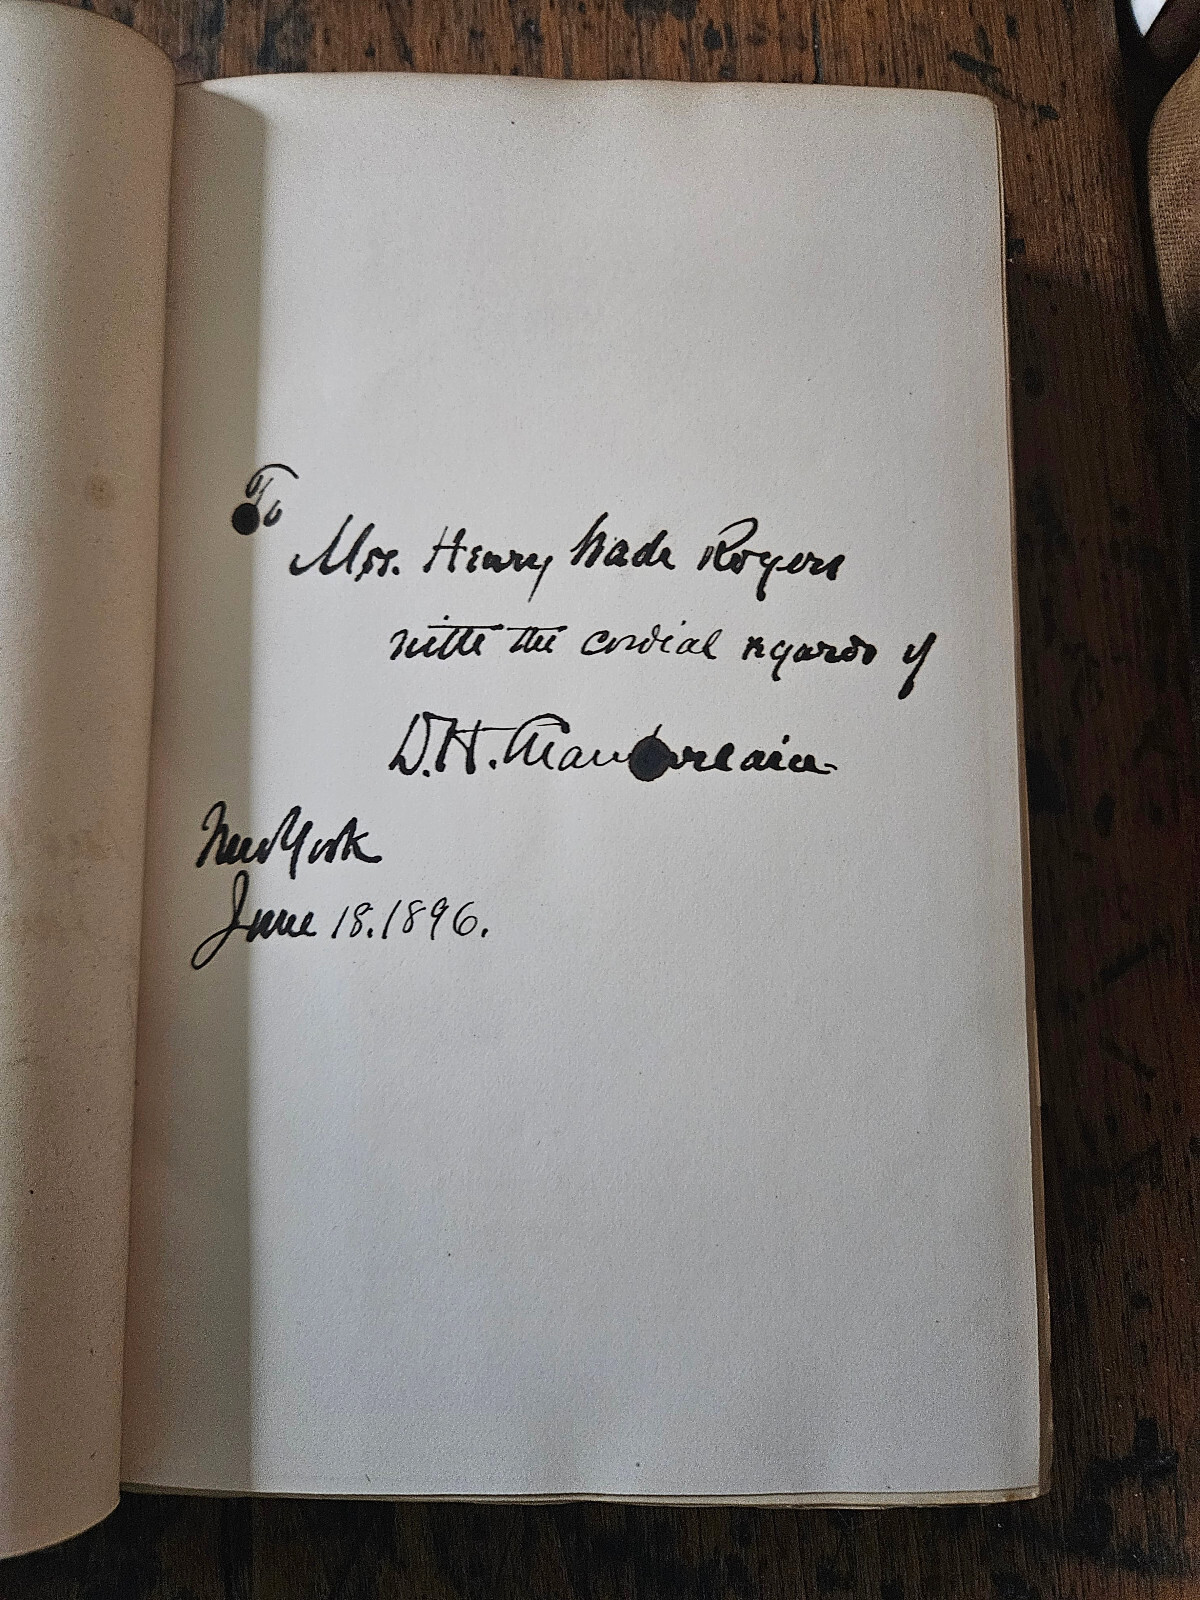 To
Mrs. Henry Wade Rogers
with the cordial regards of
D.H. Chamberlain.
New York
June 18. 1896.